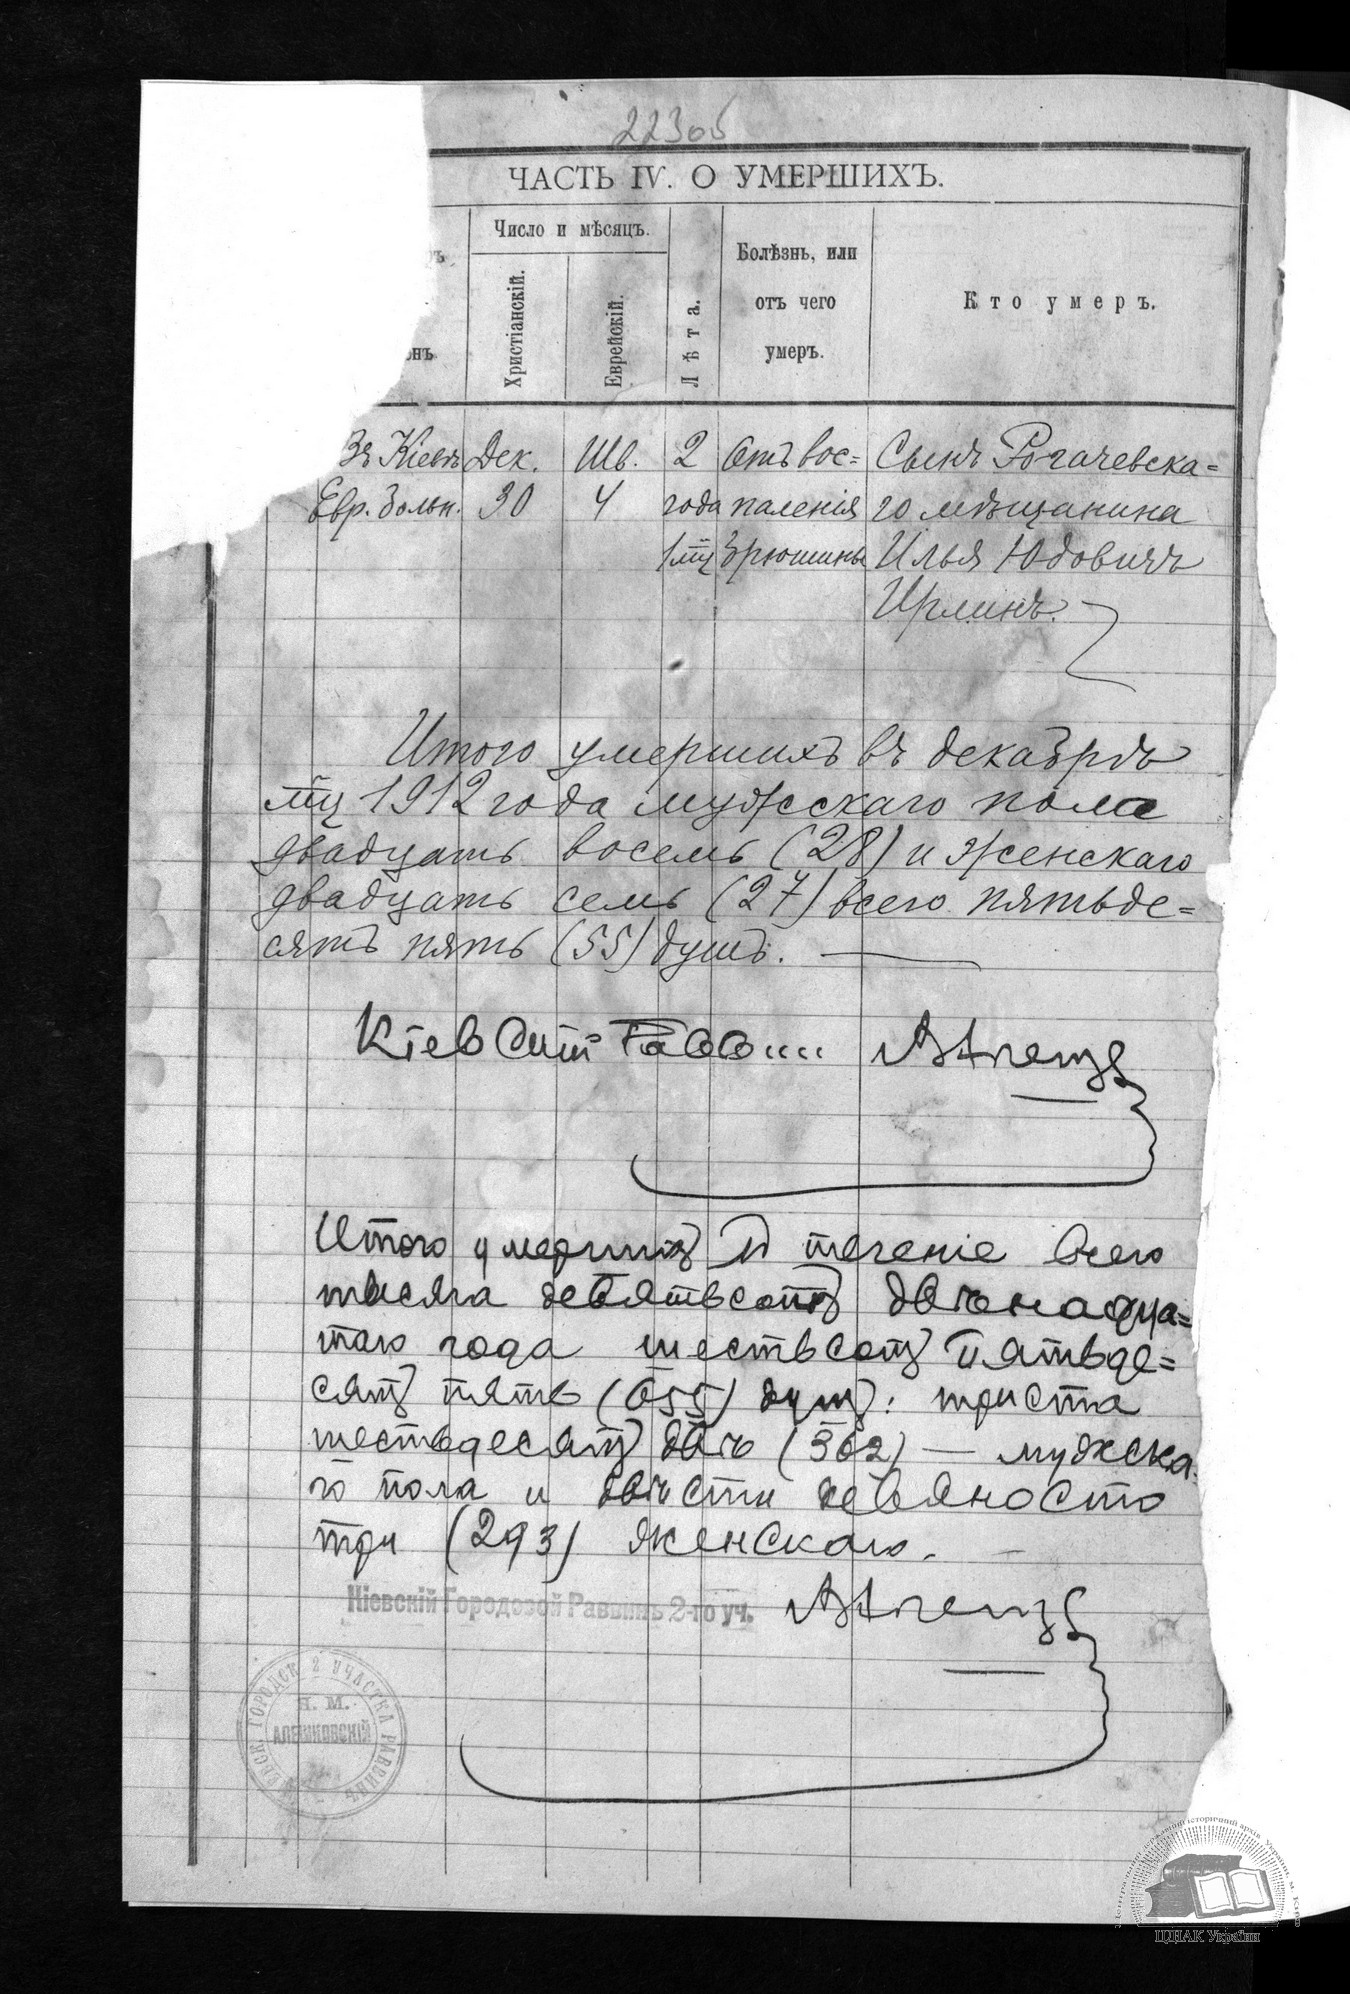 22305
ЧАСТЬ IV. О УМЕРШИХЪ.
Число и мѣсяцъ.
Христіанскій.
Еврейскій.
Лѣта.
Болѣзнь, или
отъ чего
умеръ.
Кто умеръ.
Въ Кіевѣ Дек. Шв. 2 Отъ вос= Сынъ Рогачевска=
Евр. больн. 30 4 года паленія го мѣщанина
1 мц брюшины Илья Юдовичъ
Ирлинъ.
Итого умершихъ въ декабрѣ
мц 1912 года мужскаго пола
двадцать восемь (28) и женскаго
двадцать семь (27) всего пятьде=
сятъ пять (55) душъ.
Итого умершихъ въ теченіе всего
тысяча девятьсотъ двѣнадца=
таго года шестьсотъ пятьде=
сятъ пять (655) душъ: триста
шестьдесятъ два (362) — мужска
го пола и двѣсти девяносто
три (293) женскаго.
Кіевскій Городской Раввинъ 2-го уч.
КІЕВСК. ГОРОДСК. 2 УЧАСТКА РАВВИНЪ
Я. М.
АЛЕШКОВСКІЙ
ЦДІАК України